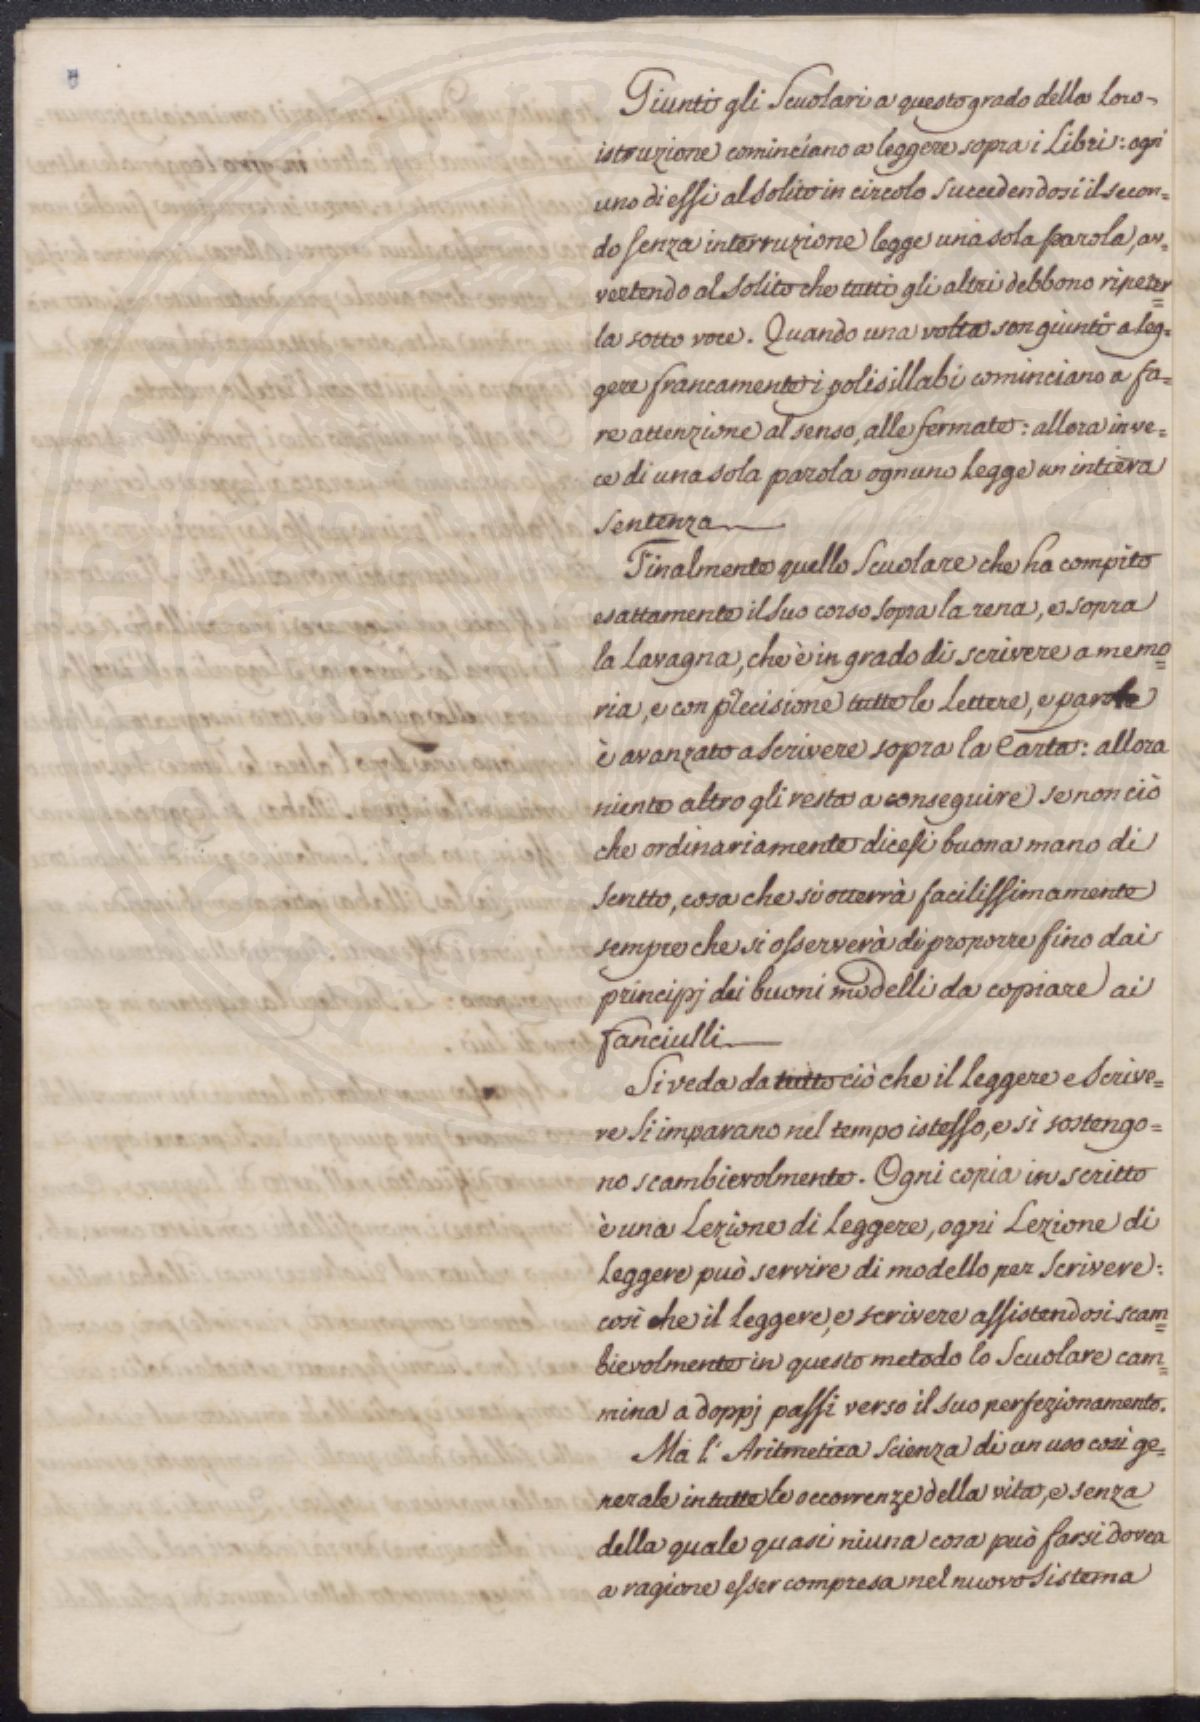 Giunti gli Scuolari a questo grado della loro
istruzione cominciano a leggere sopra i Libri: ogn'
uno di essi al solito in circolo succedendosi il secon=
do senza interruzione legge una sola parola, av=
vertendo al solito che tutti gli altri debbono ripeter=
la sotto voce. Quando una volta son giunti a leg=
gere francamente i polisillabi cominciano a fa=
re attenzione al senso, alle fermate: allora in ve=
ce di una sola parola ognuno legge un intiera
sentenza
Finalmente quello Scuolare che ha compito
esattamente il suo corso sopra la rena, e sopra
la Lavagna, che è in grado di scrivere a memo=
ria, e con precisione tutte le Lettere, e parole
è avanzato a scrivere sopra la Carta: allora
niente altro gli resta a conseguire se non ciò
che ordinariamente dicesi buona mano di
scritto, cosa che si otterrà facilissimamente
sempre che si osserverà di proporre fino dai
principj dei buoni modelli da copiare ai
fanciulli
Si veda da tutto ciò che il leggere e scrive=
re si imparano nel tempo istesso, e si sostengo=
no scambievolmente. Ogni copia in scritto
è una Lezione di leggere, ogni Lezione di
leggere può servire di modello per scrivere:
così che il leggere, e scrivere assistendosi scam=
bievolmente in questo metodo lo Scuolare cam=
mina a doppj passi verso il suo perfezionamento.
Ma l' Aritmetica scienza di un uso così ge=
nerale in tutte le occorrenze della vita, e senza
della quale quasi niuna cosa può farsi dovea
a ragione esser compresa nel nuovo sistema